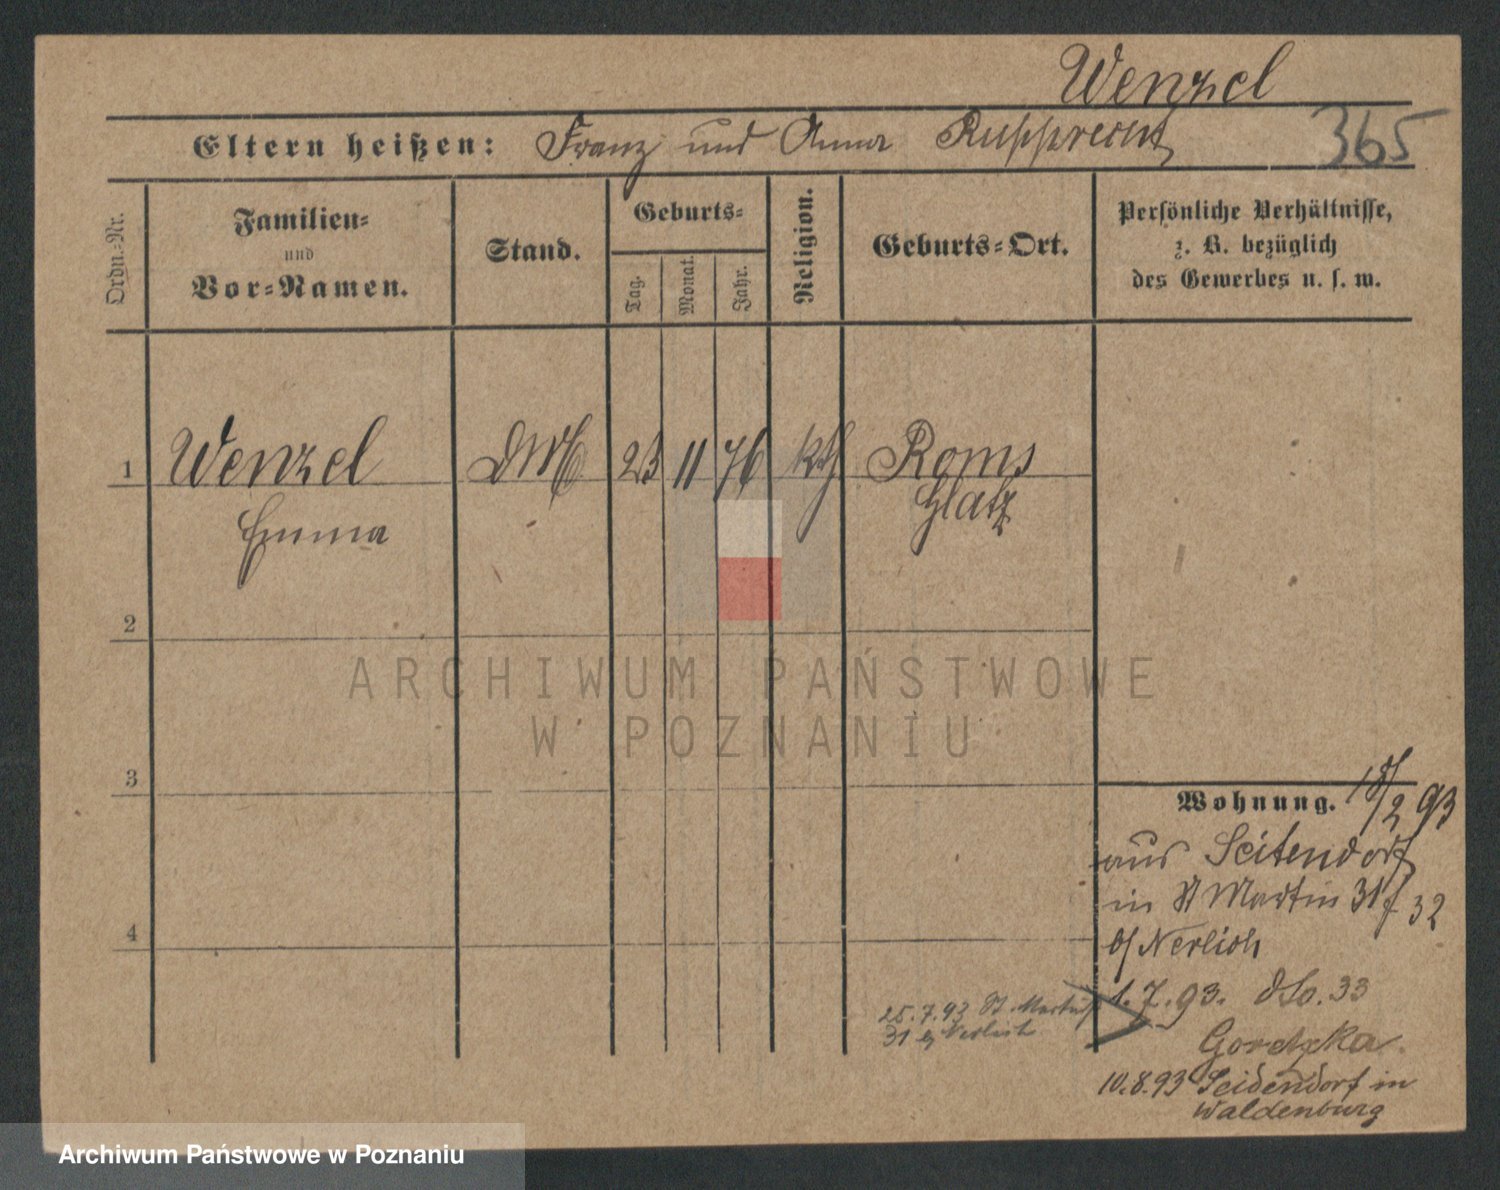 Wenzel
Eltern heißen: Franz und Anna Rupprecht
365
Ordn.-Nr.
Familien-
und
Vor-Namen.
Stand.
Geburts-
Tag.
Monat.
Jahr.
Religion.
Geburts-Ort.
Persönliche Verhältnisse,
z. B. bezüglich
des Gewerbes u. s. w.
1 Wenzel 23 11 76 kth Roms
Emma Glatz
2
3
4
Wohnung. 18/2 93
aus Seitendorf
in St Martin 31 32
b/ Nerlich
1.7.93. dto. 33
Goretzka
25.7.93 St. Martin
31 b/ Nerlich
10.8.93 Seidendorf in
Waldenburg
ARCHIWUM PAŃSTWOWE
W POZNANIU
Archiwum Państwowe w Poznaniu